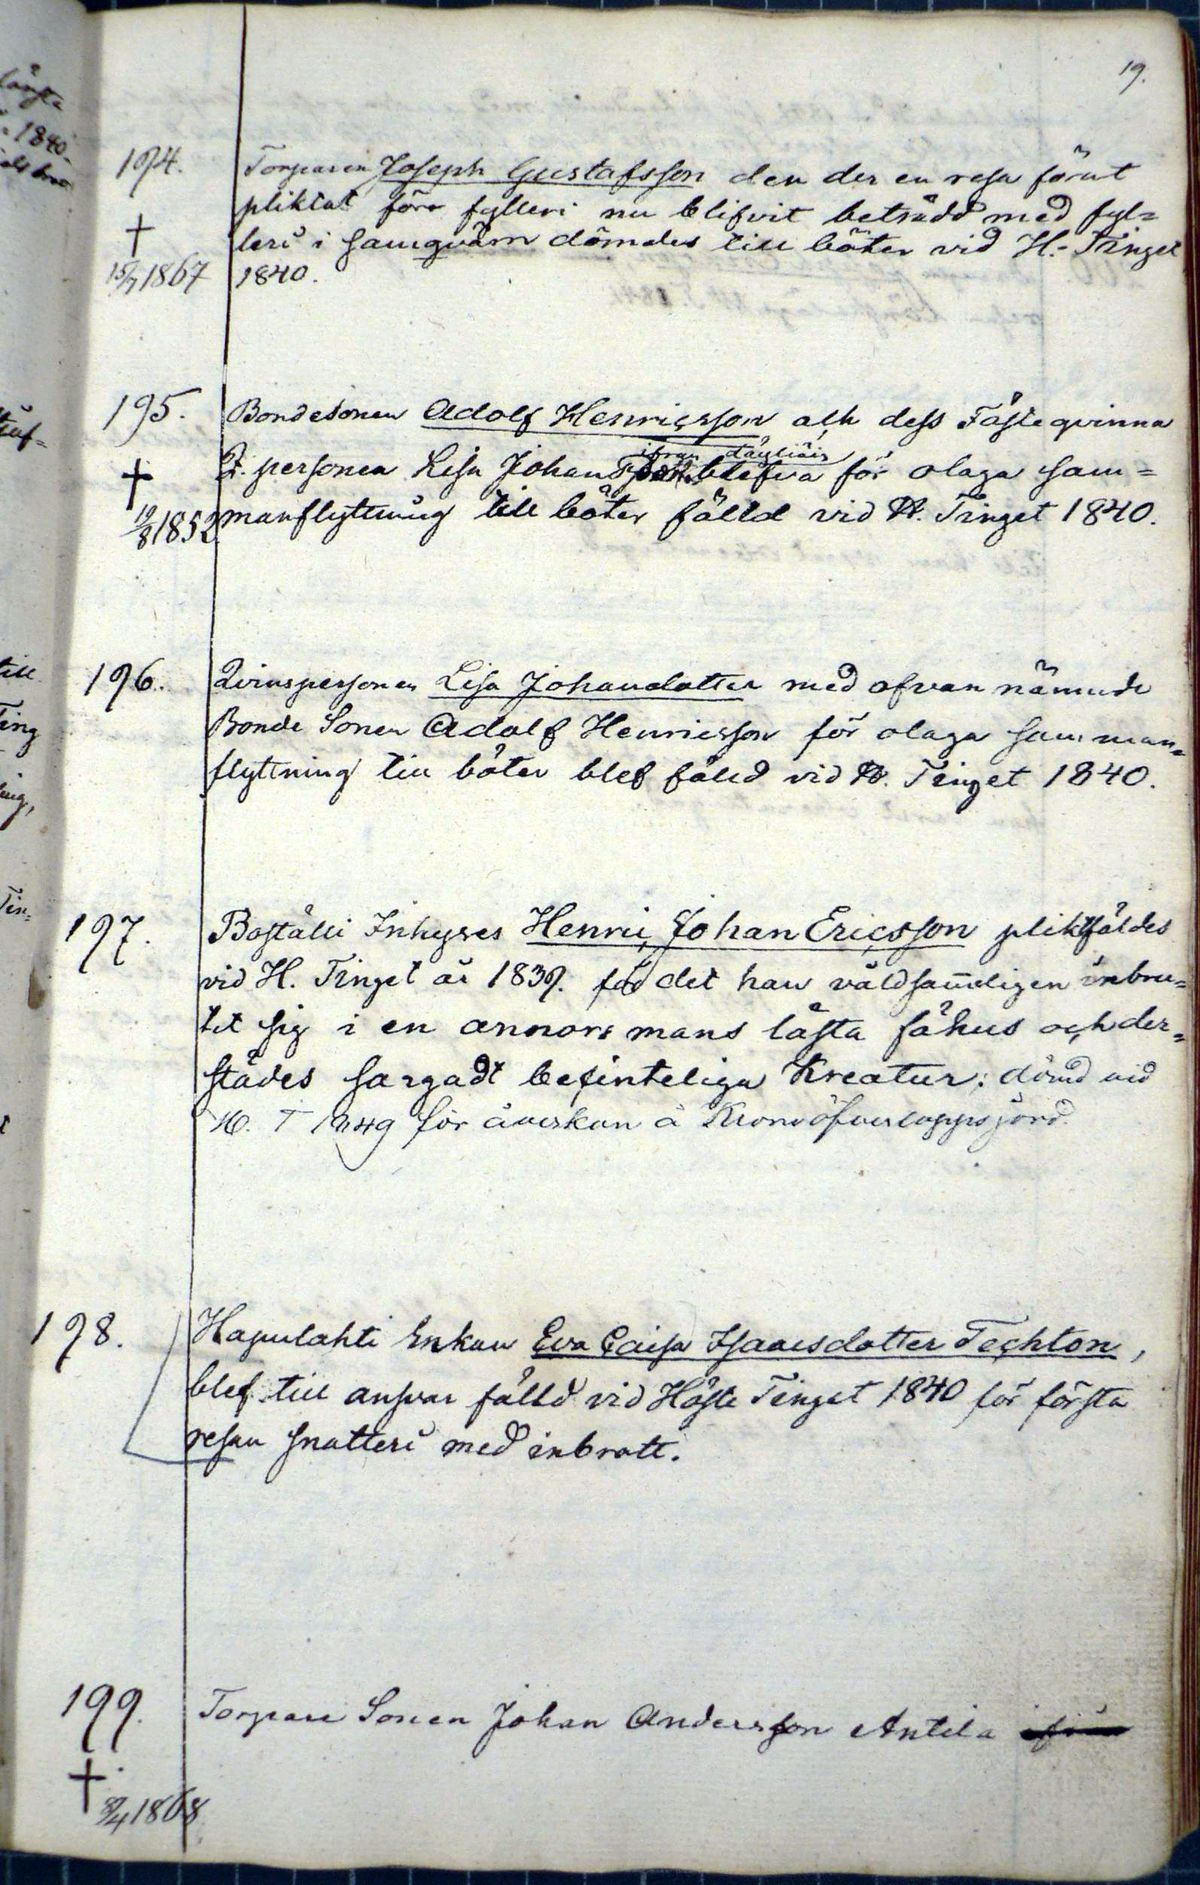 19.
194. Torparen Joseph Gustafsson den der en resa förut
pliktat före fylleri nu blifvit beträdd med fyl=
† leri i samqväm dömdes till böter vid H. Tinget
15/7 1867 1840.
195. Bondesonen Adolf Henricsson och dess Fästeqvinna
ifrån
† Q. personen Lisa Johansdotter blefva för olaga sam=
19/8 1852 manflyttning till böter fälld vid H. Tinget 1840.
196. Qvinspersonen Lisa Johansdotter med ofvan nämnde
Bonde Sonen Adolf Henricsson för olaga samman=
flyttning till böter blef fälld vid H. Tinget 1840.
197. Boställi Inhyses Henric Johan Ericsson pliktfäldes
vid H. Tinget år 1839. för det han våldsamligen inbru=
tit sig i en annors mans låsta fähus och der=
städes sargadt befinteliga Kreatur; dömd vid
H. T 1849 för åverkan å Kronoöfverloppsjord.
198. Hapulahti Enkan Eva Caisa Isaacsdotter Techton,
blef till ansvar fälld vid Höste Tinget 1840 för första
resan snatteri med inbrott.
199. Torpare Sonen Johan Andersson Antila
†
/4 1868